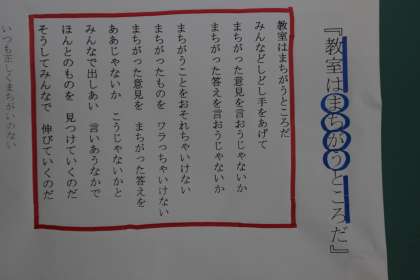 『教室はまちがうところだ』
教室はまちがうところだ
みんなどしどし手をあげて
まちがった意見を言おうじゃないか
まちがった答えを言おうじゃないか
まちがうことをおそれちゃいけない
まちがったものを ワラっちゃいけない
まちがった意見を まちがった答えを
ああじゃないか こうじゃないかと
みんなで出しあい 言いあうなかで
ほんとのものを 見つけていくのだ
そうしてみんなで 伸びていくのだ
いつも正しくまちがいのない